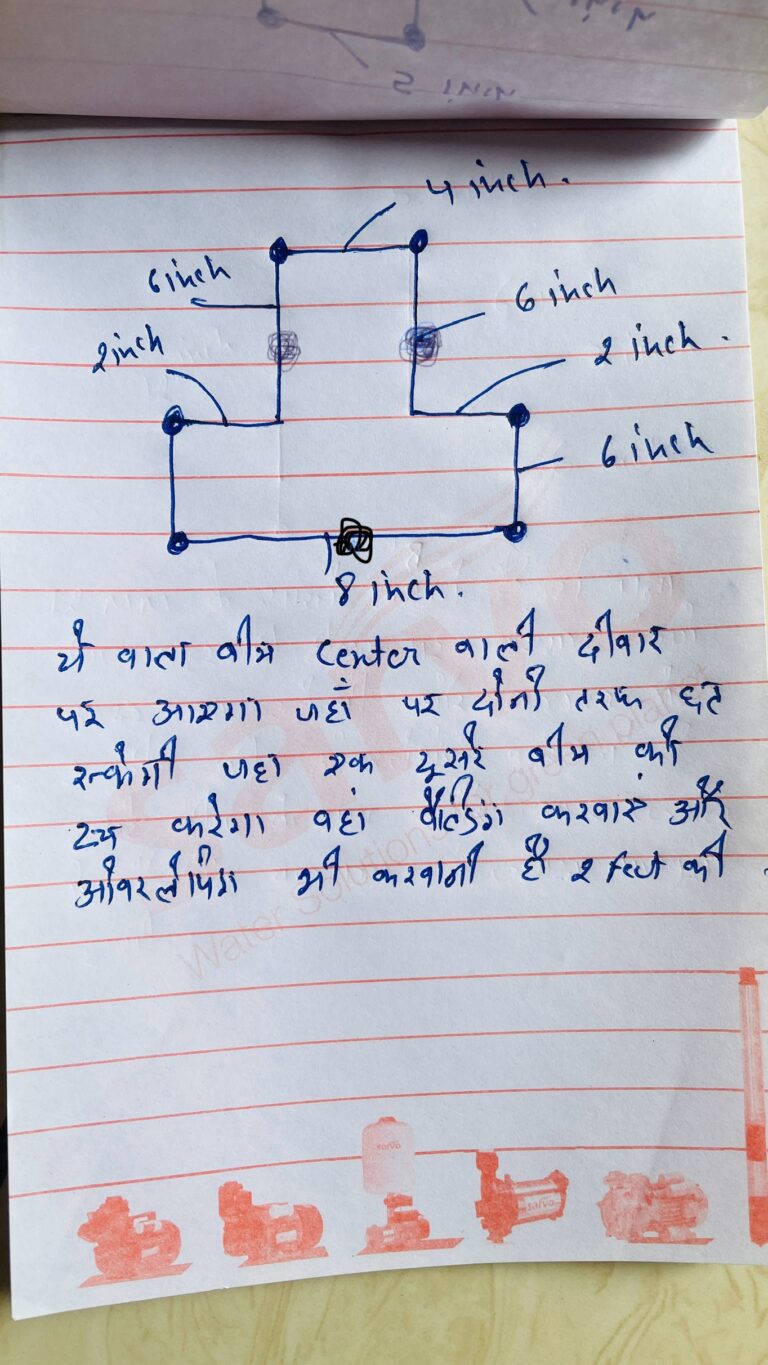 4 inch.
6 inch
6 inch
2 inch
2 inch.
6 inch
8 inch.
ये वाला बीम center वाली दीवार
पर आएगा जहाँ पर दोनों तरफ छत
रुकेगी जहा एक दूसरे बीम को
टच करेगा वहां वेल्डिंग करवाए और
ओवरलेपिंग भी करवानी है 2 feet की
Water Solutions for green planet